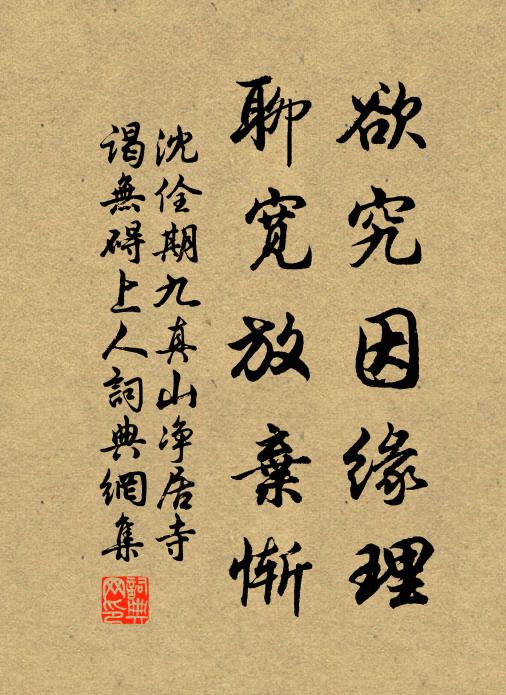 欲究因緣理
聊寬放棄慚
沈佺期九真山净居寺
謁無碍上人詞典網集